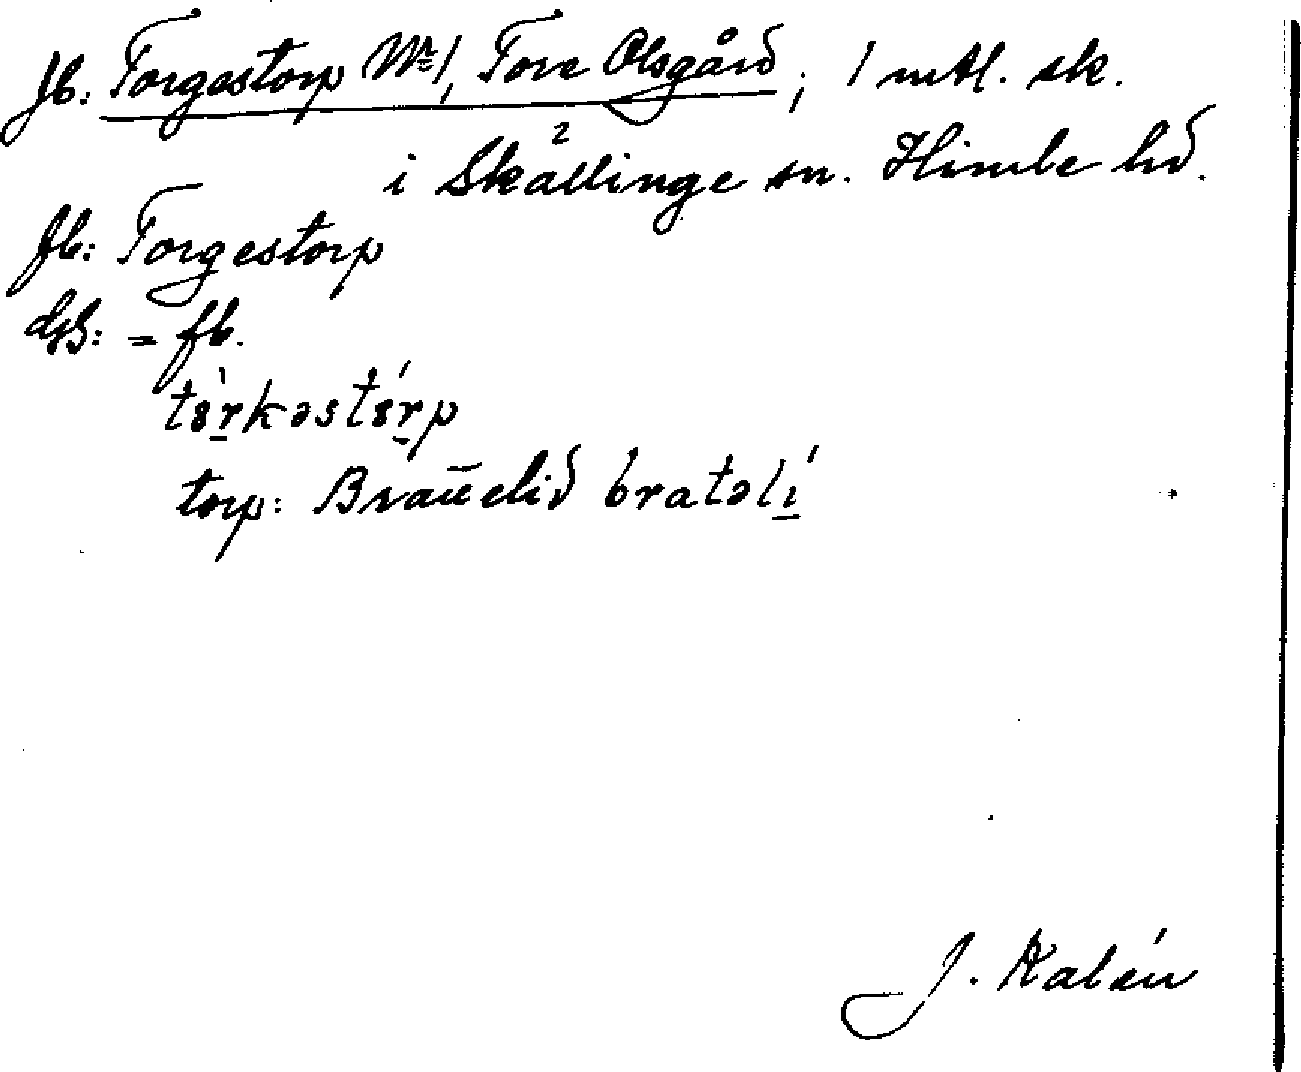 Jb: Torgestorp №1, Tore Olsgård; 1 mtl. sk.
i Skällinge sn. Himle hd.
fb: Torgestorp
GS: = fb.
tørkəstørp
torp: Brattelid bratəlí
J. Kalén